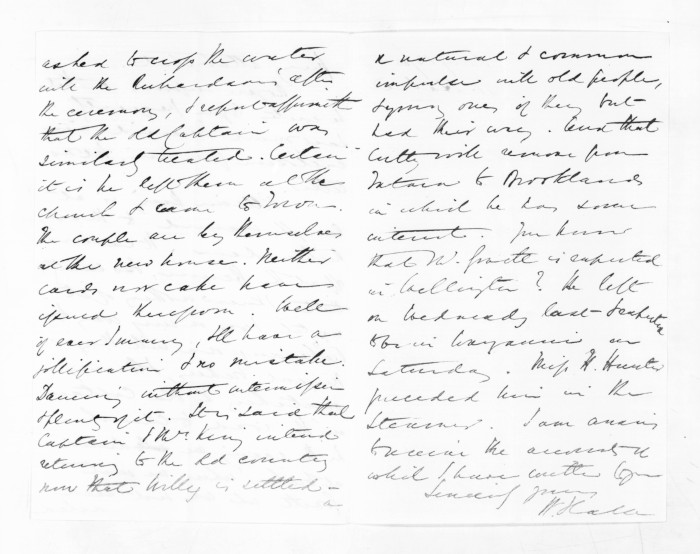 asked to cross the water
with the Richardsons after
the ceremony, & report affirmeth
that the old Captain was
similarly treated. Certain
it is he left them at the
church & came to town.
The couple are by themselves
at the new house. Neither
cards nor cake have
issued therefrom. Well
if ever I marry, I'll have a
jollification & no mistake.
Dancing without intermission
& plenty of it. It is said that
Captain & Mrs King intend
returning to the old country
now that Willy is settled -
a natural & common
impulse with old people,
& young ones if they but
had their way. And that
will remove from
to Brooklands
in which he has some
interest. You know
that is expected
in Wellington? He left
on Wednesday last & expected
to be in on
Saturday. Miss H. Hunter
preceded him in the
Steamer. I am anxious
to receive the account of
which I have written to you
Sincerely yours
W. Halse